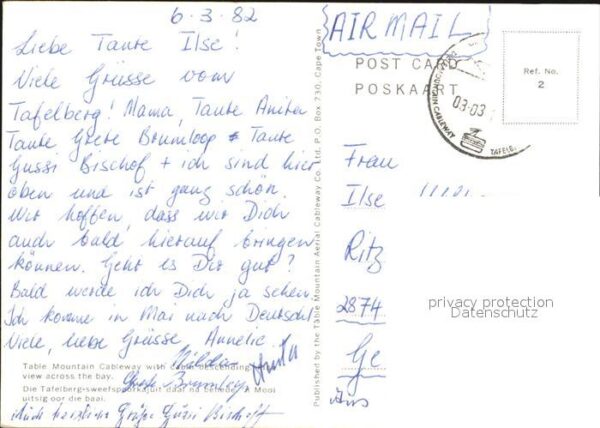 6.3.82
Liebe Tante Ilse!
Viele Grüsse vom
Tafelberg! Mama, Tante Anita
Tante Grete Brumloop Tante
Gussi Bischof + ich sind hier
oben und ist ganz schön.
Wir hoffen, dass wir Dich
auch bald hierauf bringen
können. Geht es Dir gut?
Bald werde ich Dich ja sehen.
Ich komme in Mai nach Deutschl.
Viele, liebe Grüsse, Annelie.
Table Mountain Cableway with descending
view across the bay.
Die Tafelberg-sweefspoorkajuit daal na benede. A Mooi
uitsig oor die baai.
Grüße Gussi Bischoff
Published by the Table Mountain Aerial Cableway Co. Ltd. P.O. Box 730, Cape Town
AIR MAIL
POST CARD
POSKAART
CABLEWAY
03-03
TAFELB
Ref. No.
2
Frau
Ilse
Ritz
2874
Ge
privacy protection
Datenschutz